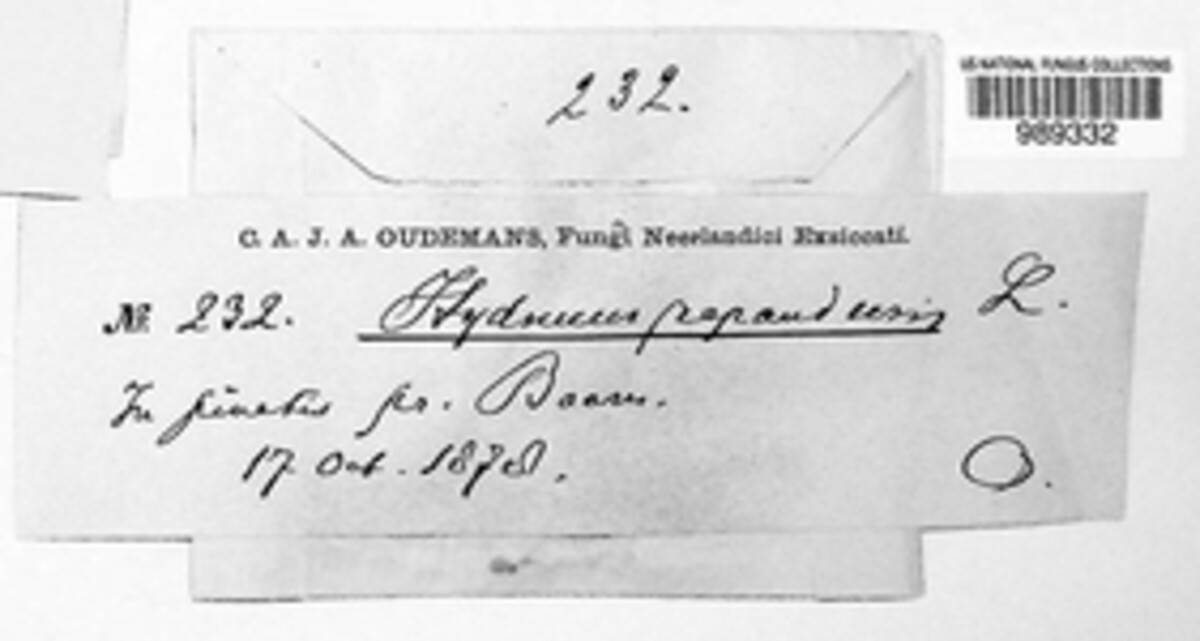 232.
US NATIONAL FUNGUS COLLECTIONS
989332
C. A. J. A. OUDEMANS, Fungi Neerlandici Exsiccati.
№ 232. Hydnum repandum L.
In pinetis pr. Baarn.
17 Oct. 1878.
O.